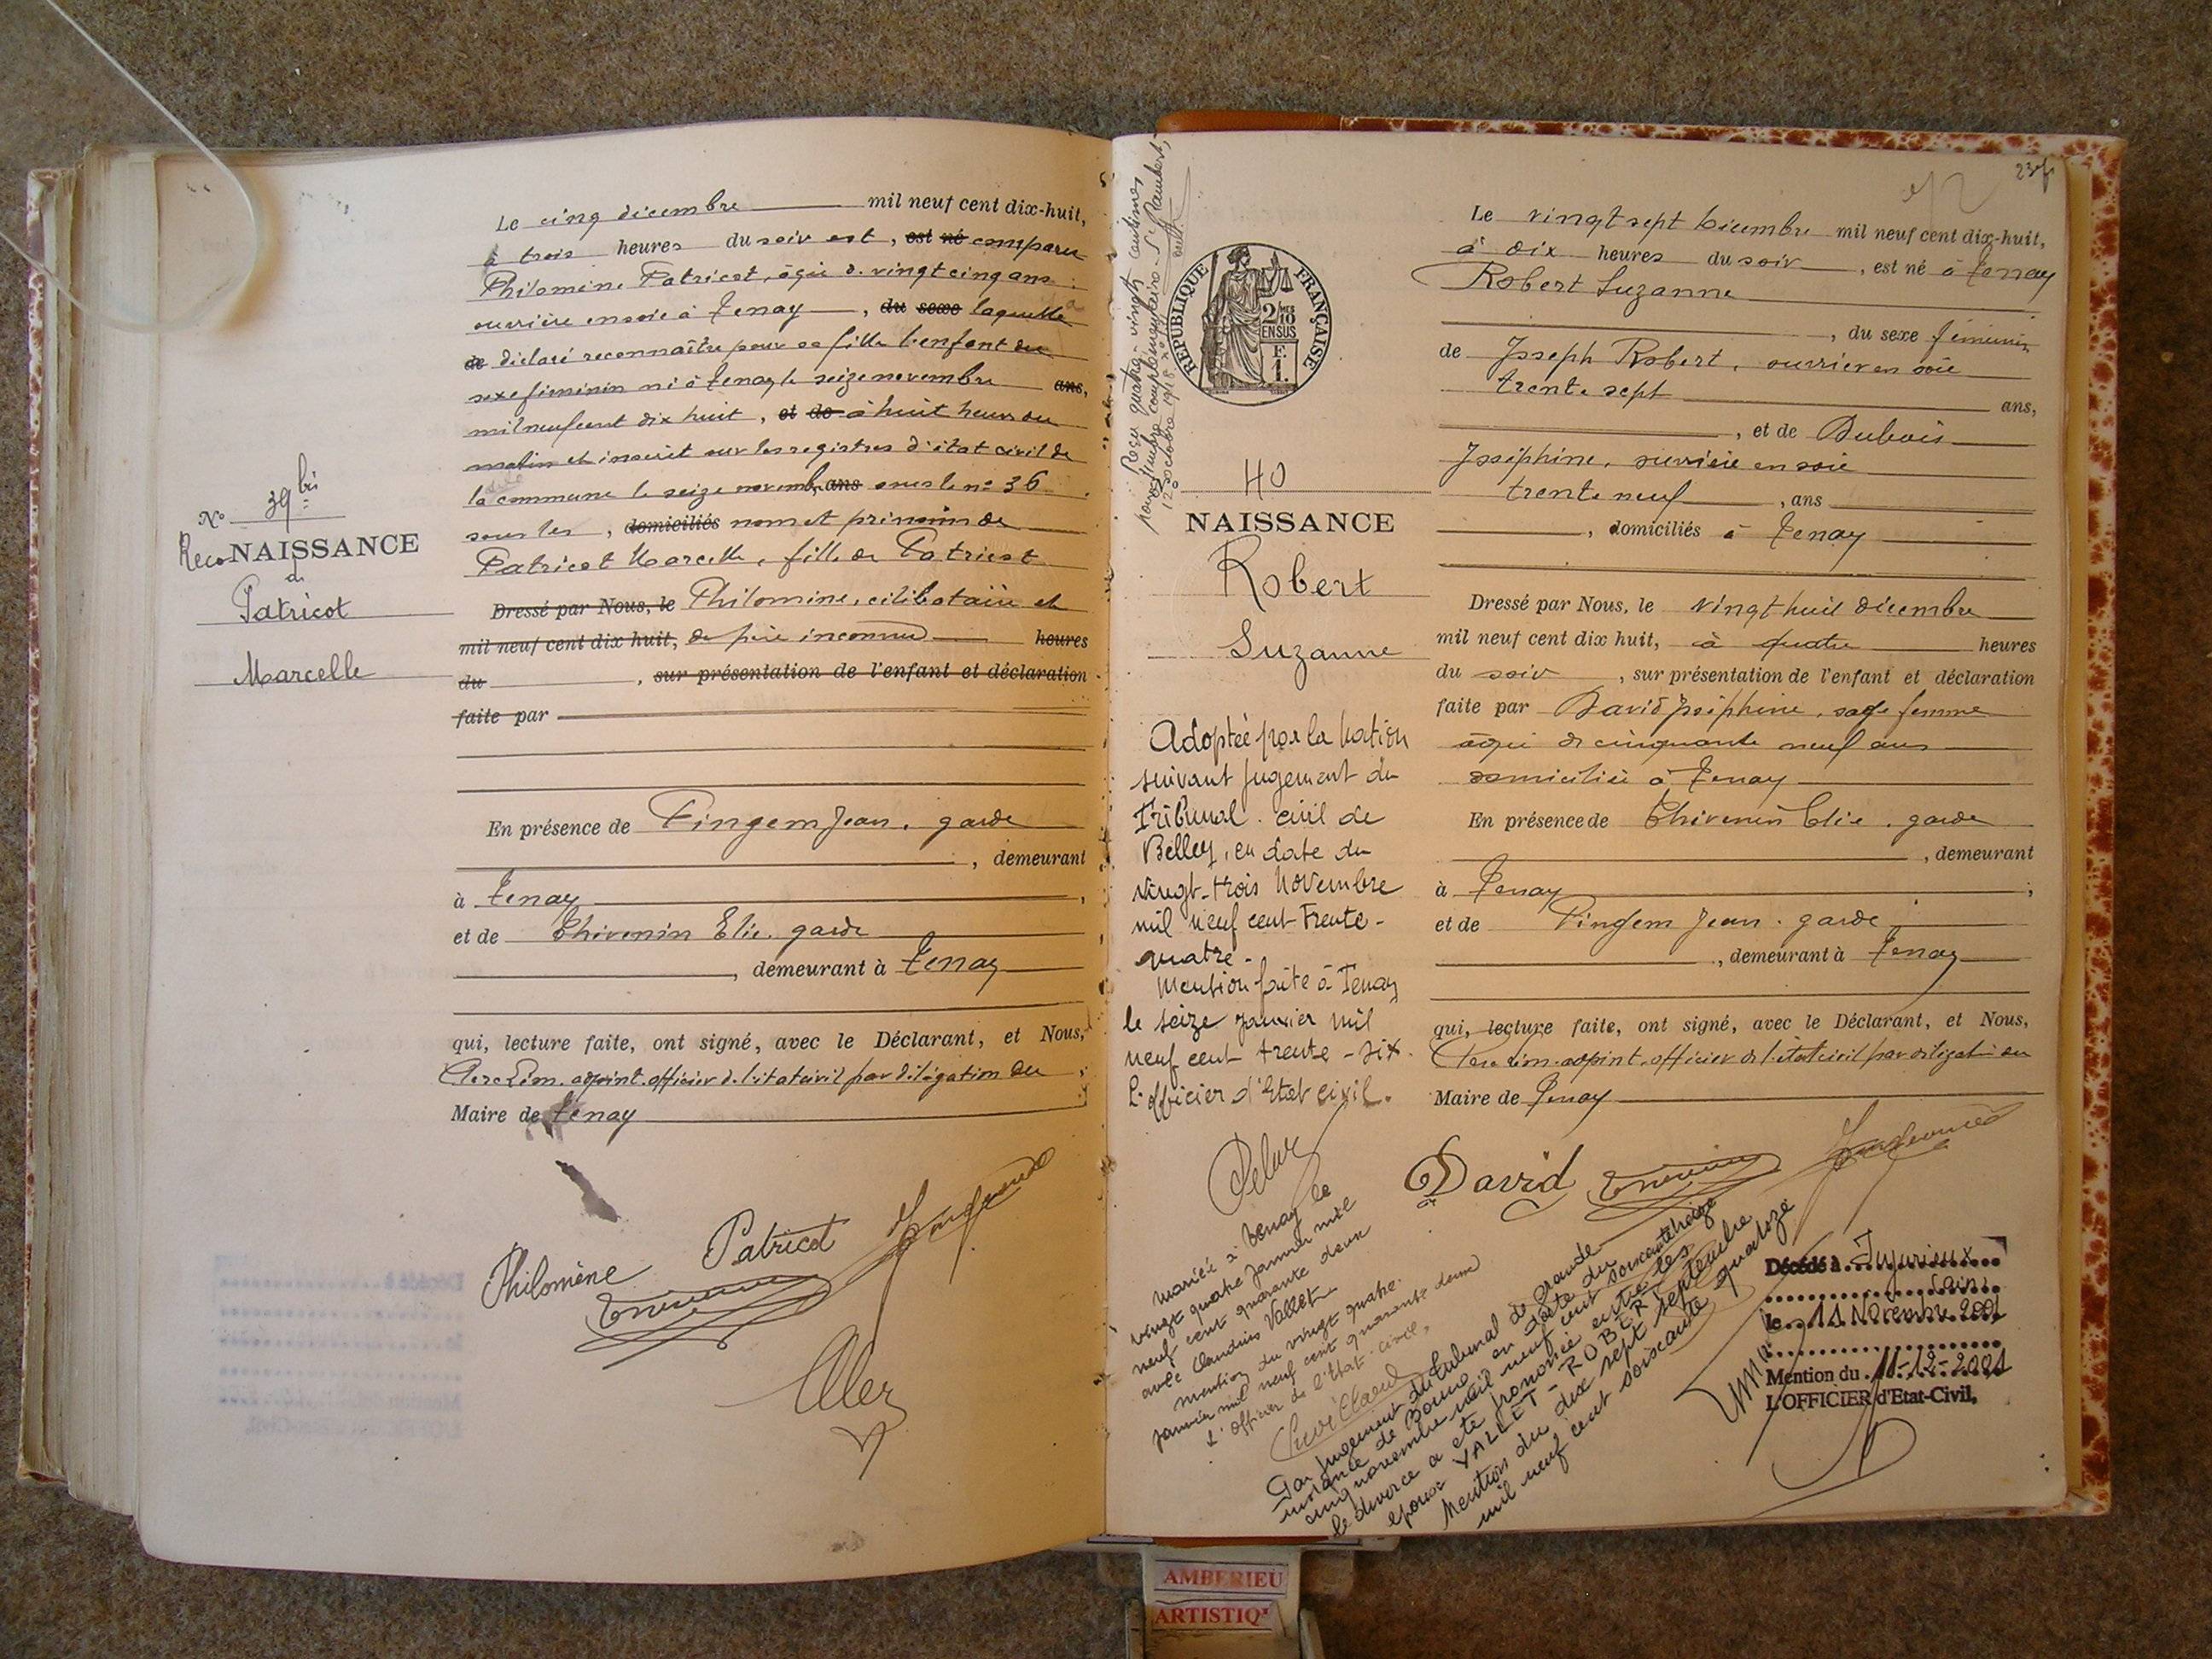 N° 39 bis
RecoNAISSANCE
d
Patricot
Marcelle
Le cinq décembre mil neuf cent dix-huit,
à trois heures du soir est, est né comparu
Philomène Patricot, âgée de vingt cinq ans
ouvrière en soie à Tenay, du sexe laquelle a
de déclaré reconnaître pour sa fille l'enfant du
sexe féminin né à Tenay le seize novembre ans,
mil neuf cent dix huit, et de à huit heures du
matin et inscrit sur les registres d'état civil de
la commune le seize novemb. ans sous le n° 36
sous les, domiciliés nom et prénom de
Patricot Marcelle, fille de Patricot
Dressé par Nous, le Philomène, célibataire et
mil neuf cent dix huit, de père inconnu heures
du , sur présentation de l'enfant et déclaration
faite par
En présence de Pingem Jean, garde
, demeurant
à Tenay,
et de Thivenin Elie, garde
, demeurant à Tenay
qui, lecture faite, ont signé, avec le Déclarant, et Nous,
adjoint officier de l'état civil par délégation du
Maire de Tenay
Philomène Patricot
Reçu quatre-vingts centimes
pour timbre complémentaire - St Rambert,
12 octobre 1918
RÉPUBLIQUE FRANÇAISE
2/10
EN SUS
F.
1.
40
NAISSANCE
Robert
Suzanne
Adoptée par la Nation
suivant jugement du
Tribunal civil de
Belley, en date du
vingt-trois Novembre
mil neuf cent trente-
quatre.
Mention faite à Tenay
le seize janvier mil
neuf cent trente-six.
L'officier d'Etat civil.
Mariée à Tenay le
vingt quatre janvier mil
neuf cent quarante deux
avec Claudius Vallet
Mention du vingt quatre
janvier mil neuf cent quarante deux
L'officier de l'Etat-civil,
Le vingt sept décembre mil neuf cent dix-huit,
à dix heures du soir, est né à Tenay
Robert Suzanne
, du sexe féminin
de Joseph Robert, ouvrier en soie
trente sept ans,
, et de Dubois
Joséphine, ouvrière en soie
trente neuf, ans
, domiciliés à Tenay
Dressé par Nous, le vingt huit décembre
mil neuf cent dix huit, à quatre heures
du soir, sur présentation de l'enfant et déclaration
faite par David Joséphine, sage femme
âgée de cinquante neuf ans
domiciliée à Tenay
En présence de Thivenin Elie, garde
, demeurant
à Tenay;
et de Pingem Jean, garde
, demeurant à Tenay
qui, lecture faite, ont signé, avec le Déclarant, et Nous,
adjoint, officier de l'état civil par délégation du
Maire de Tenay
David
Par jugement du tribunal de grande
instance de en date du
cinq novembre mil neuf cent soixante treize
le divorce a été prononcé entre les
époux VALLET - ROBERT
Mention du dix sept septembre
mil neuf cent soixante quatorze
Décédé à Jujurieux
(Ain)
le 11 Novembre 2001
Mention du 11-12-2001
L'OFFICIER d'Etat-Civil,
AMBERIEU
ARTISTIQ